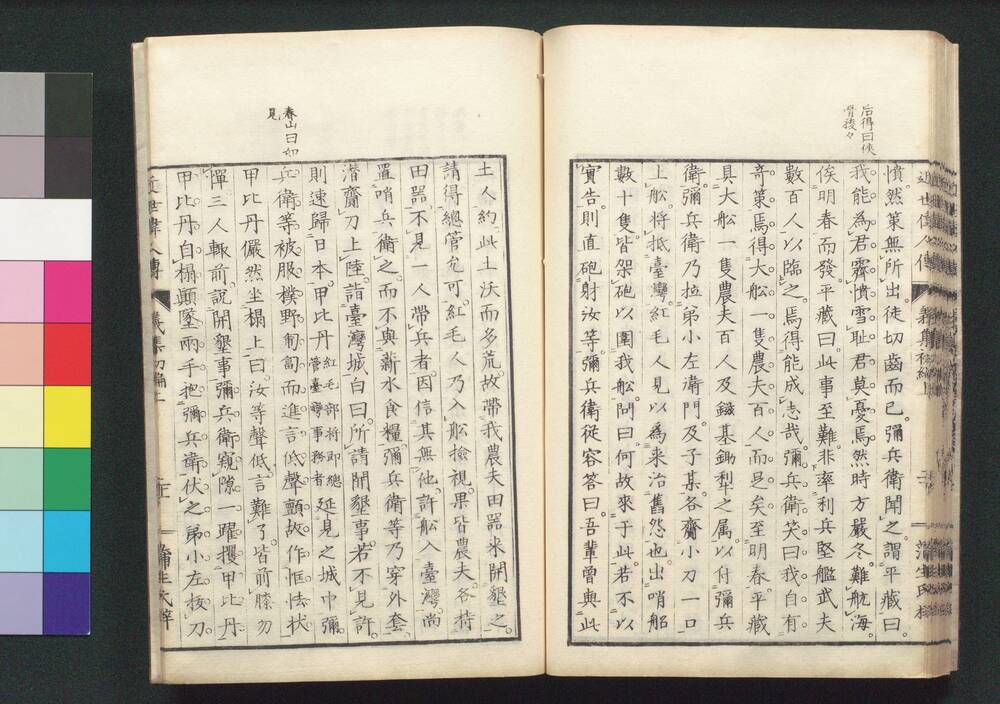 后得曰俠
骨稜々
憤然策無所出徒切齒而已彌兵衛聞之謂平藏曰
我能為君霽憤雪耻君莫憂焉然時方嚴冬難航海
俟明春而發平藏曰此事至難非率利兵堅艦武夫
數百人以臨之焉得能成志哉彌兵衛笑曰我自有
奇策焉得大舩一隻農夫百人而足矣至明春平藏
具大舩一隻農夫百人及鎡基鋤犁之属以付彌兵
衛彌兵衛乃拉弟小左衛門及子某各齎小刀一口
上舩將抵臺灣紅毛人見以為来冶舊怨也出哨船
數十隻皆架砲以圍我舩問曰何故來于此若不以
實告則直砲射汝等彌兵衛従容答曰吾輩曾與此
春山曰如
見
土人約此土沃而多荒故帶我農夫田器来開墾之
請得總管允可紅毛人乃入舩撿視果皆農夫各持
田器不見一人帶兵者因信其無他許舩入臺灣尚
置哨兵衛之而不與薪水食糧彌兵衛等乃穿外套
潜齎刀上陸詣臺灣城白曰所請開墾事若不見許
則速歸日本甲比丹紅毛部将即總管臺灣事務者延見之城中彌
兵衛等被服樸野匍匐而進言低聲顫故作恇怯状
甲比丹儼然坐榻上曰汝等聲低言難了皆前膝勿
憚三人輙前説開墾事彌兵衛窺隙一躍攫甲比丹
甲比丹自榻顛墜兩手把彌兵衛伏之弟小左抜刀
近世偉人傳 義集初編上 蒲生氏梓